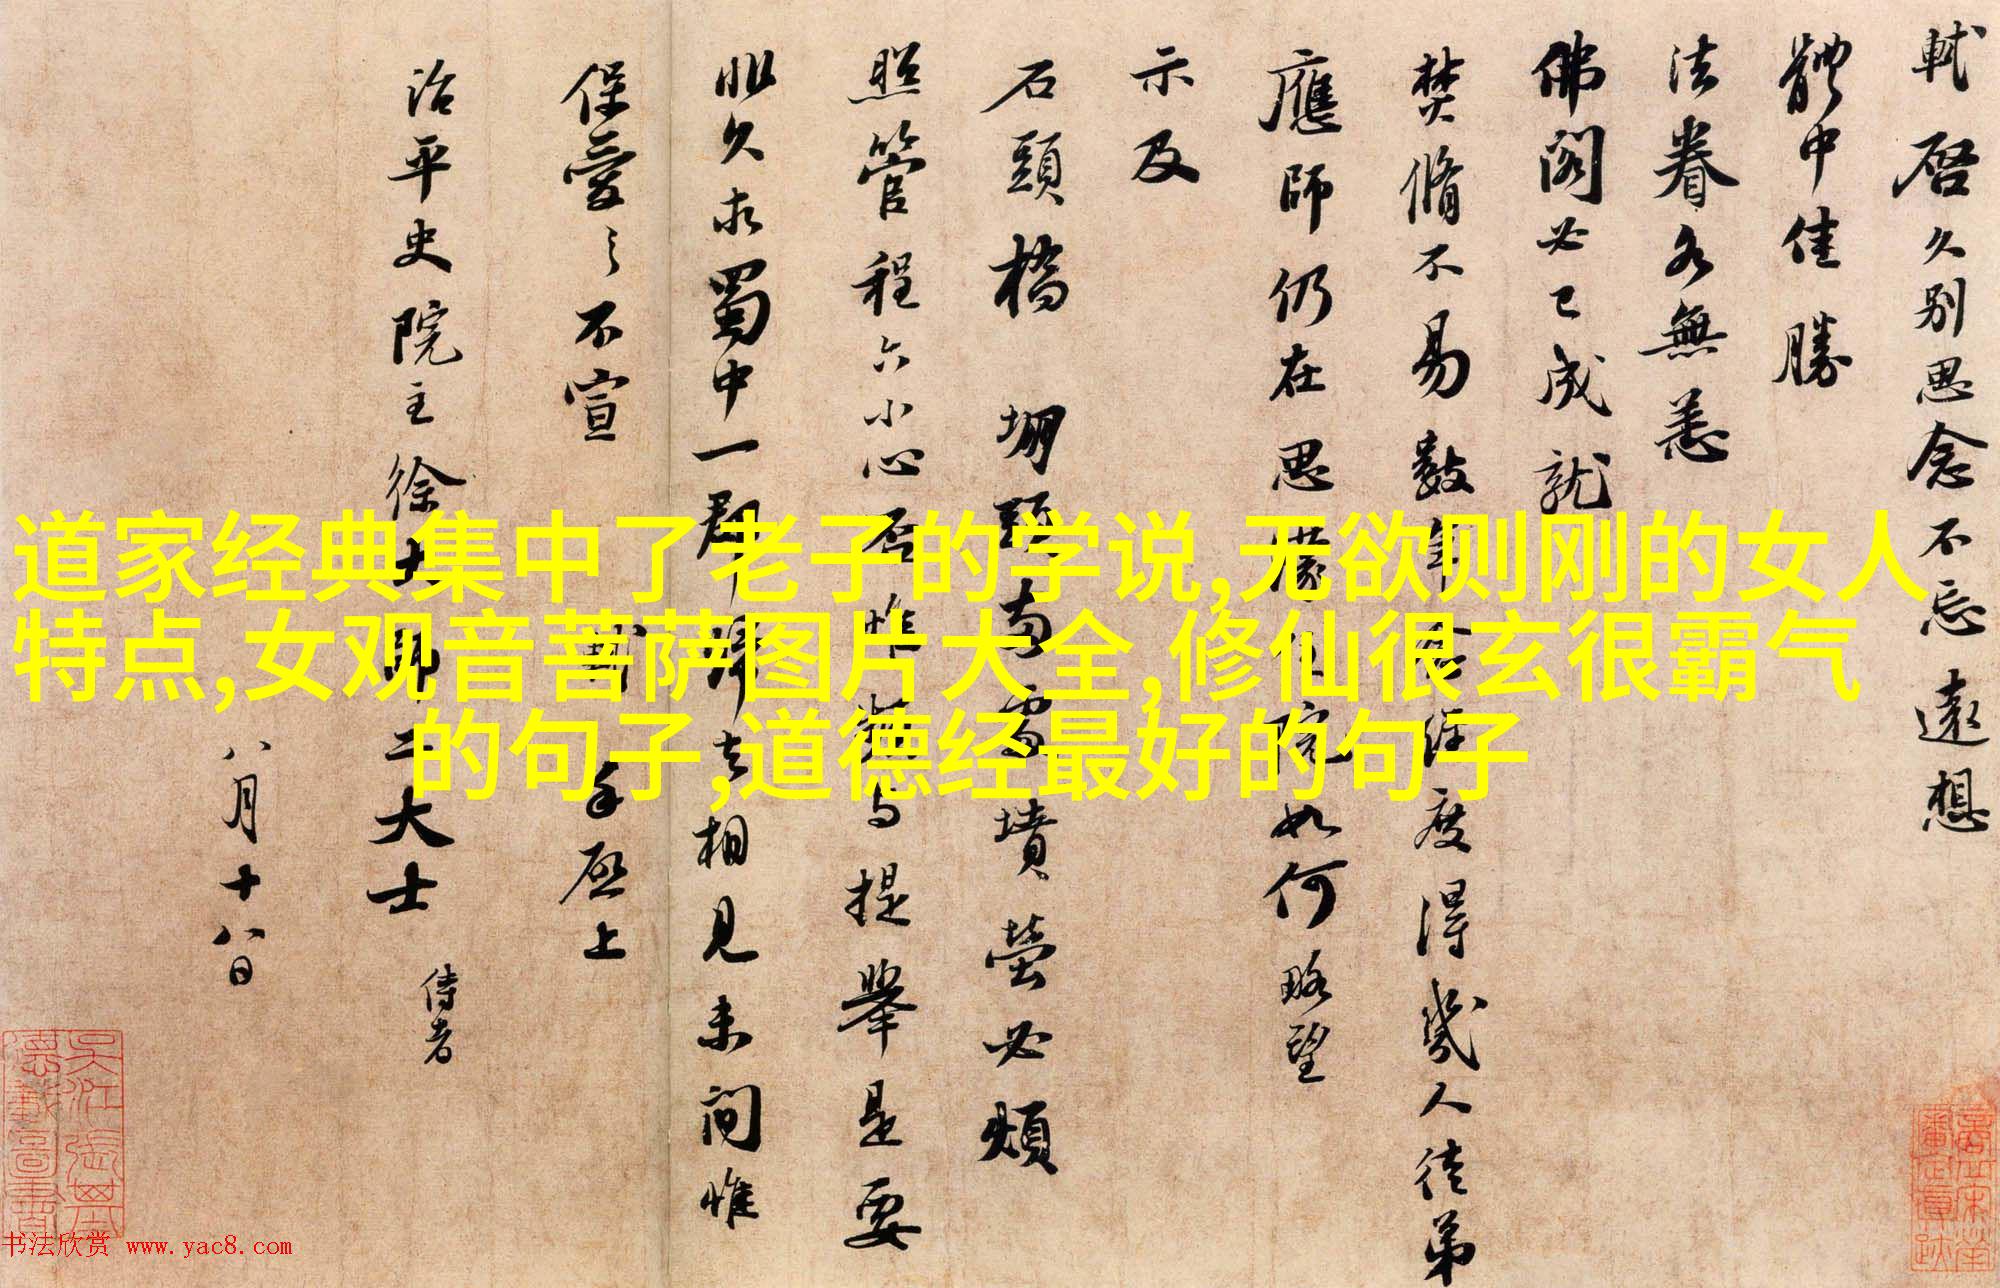 軾啓久别思念不忘遠想
體中佳勝
法眷各無恙
佛閣必已成就
焚脩不易數年念經度得幾人徒弟
應師仍在思濛住院如何略望
示及
石頭橋 堋頭兩處墳塋必煩
照管程六小心否惟頻与提舉是要
非久求蜀中一郡歸去相見未間惟
保愛之不宣 軾手啓上
治平史院主徐大師二大士 侍者
八月十八日
道家经典集中了老子的学说,无欲则刚的女人
特点,女观音菩萨图片大全,修仙很玄很霸气
的句子,道德经最好的句子
书法欣赏 www.yac8.com